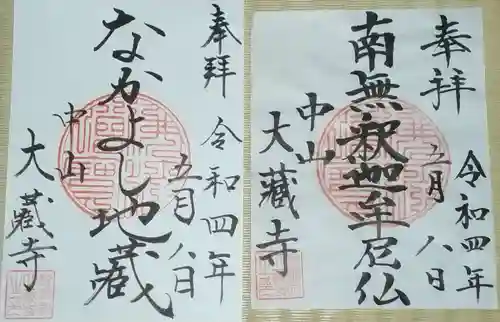 奉拝
令和四年
五月八日
なかよし地蔵
中山
大蔵寺
奉拝
令和四年
五月八日
南無釈迦牟尼仏
中山
大蔵寺